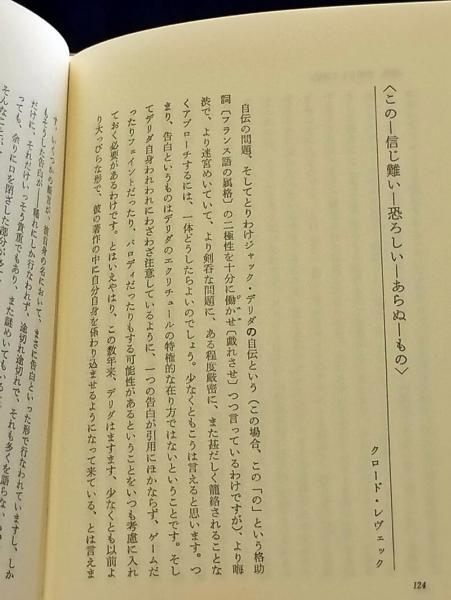 〈この―信じ難い―恐ろしい―あらぬ―もの〉
クロード・レヴェック
自伝の問題、そしてとりわけジャック・デリダの自伝という(この場合、この「の」という格助
詞[フランス語の属格]の二極性を十分に働かせ[戯れさせ]つつ言っているわけですが)、より晦
渋で、より迷宮めいていて、より剣呑な問題に、ある程度厳密に、また甚だしく籠絡されることな
くアプローチするには、一体どうしたらよいのでしょう。少なくともこうは言えると思います。つ
まり、告白というものはデリダのエクリチュールの特権的な在り方ではないということです。そし
てデリダ自身われわれにわざわざ注意しているように、一つの告白が引用にほかならず、ゲームだ
ったりフェイントだったり、パロディだったりもする可能性があるということをいつも考慮に入れ
ておく必要があるわけです。とはいえやはり、この数年来、デリダはますます、少なくとも以前よ
り大っぴらな形で、彼の著作の中に自分自身を係わり込ませるようになって来ている、とは言えま
す。いくつかの
彼自身の名において、まさに告白といった形で行なわれていますし、しか
もそうした告白が
稀れにしか行なわれず、途切れ途切れで、それも多くを語らない
だけに、それだけいっそう貴重でもあり、また謎めいてもいる
っても、余りに口を閉ざした部分が多
そんな
124